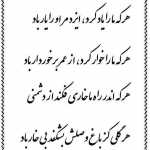 هر که ما را یاد کرد، ایزد مر او را یار باد
هر که ما را خوار کرد، از عمر برخوردار باد
هر که اندر راه ما خاری فکند از دشمنی
هر گلی کز باغ وصلش بشکفد بی خار باد